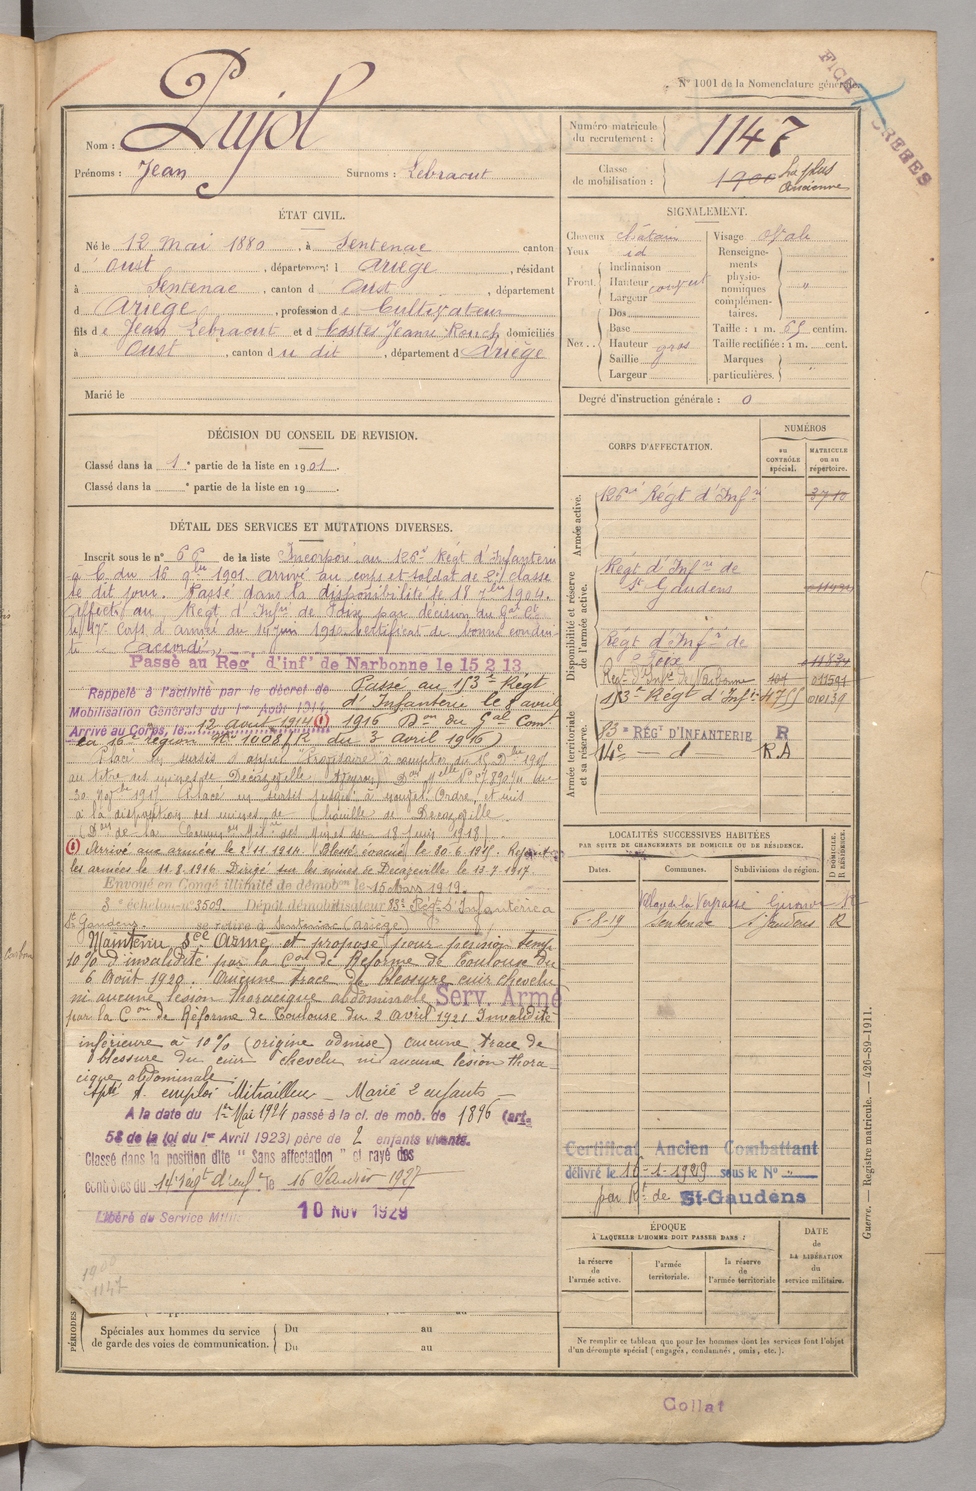 N° 1001 de la Nomenclature générale.
Nom : Pujol
Prénoms : Jean Surnoms : Lebraout
Numéro matricule du recrutement : 1147
Classe de mobilisation : 1900 La plus Ancienne
ÉTAT CIVIL.
Né le 12 Mai 1880, à Sentenac canton
d'Oust, département d Ariège, résidant
à Sentenac, canton d Oust, département
d Ariège, profession de Cultivateur
fils de Jean Lebraout et de Costes Jeanne Rouch domiciliés
à Oust, canton du dit, département d Ariège
Marié le
SIGNALEMENT.
Cheveux châtain
Yeux id
Front. Inclinaison
Hauteur couvert
Largeur
Nez.. Dos
Base
Hauteur gros
Saillie
Largeur
Visage Ovale
Renseignements physionomiques complémentaires. "
Taille : 1 m. 65 centim.
Taille rectifiée : 1 m. cent.
Marques particulières.
Degré d'instruction générale : 0
DÉCISION DU CONSEIL DE REVISION.
Classé dans la 1e partie de la liste en 1901.
Classé dans la e partie de la liste en 19
DÉTAIL DES SERVICES ET MUTATIONS DIVERSES.
Inscrit sous le n° 66 de la liste Incorporé au 126e Régt d'Infanterie
à C. du 16 9bre 1901. Arrivé au corps et soldat de 2e classe
le dit jour. Passé dans la disponibilité le 18 7bre 1904.
Affecté au Régt d'Infie de Foix par décision du Gal Ct
le 17e Corps d'armée du 14 juin 1910. Certificat de bonne condui-
te " accordé.
Passé au Régt d'infie de Narbonne le 15 2 13
Rappelé à l'activité par le décret de
Mobilisation Générale du 1er Août 1914
Arrivé au Corps, le 12 août 1914 (1)
Passé au 153e Régt
d'Infanterie le 8 avril
1916 Don du Gal Comt
la 16e région No 1008/R du 3 Avril 1916)
Placé en sursis d'appel Provisoire à compter du 15 Dbre 1917
au titre des mines de Decazeville (Aveyron)
30 Novbre 1917. Placé en sursis jusqu'à nouvel Ordre, et mis
à la disposition des mines de houille de Decazeville.
(1) Arrivé aux armées le 2.11.1914. Blessé évacué le 30.6.1915.
les armées le 11.8.1916. Dirigé sur les mines de Decazeville le 13.7.1917.
Envoyé en Congé illimité de démobon le 15 Mars 1919.
3e échelon n° 3509. Dépôt démobilisateur 83e Régt d'Infanterie à
St Gaudens. se retire à Sentenac (Ariège)
Maintenu Sce Armé et proposé pour pension temp
10 % d'invalidité par la Con de Réforme de Toulouse du
6 Août 1920. Aucune trace de blessure cuir chevelu
ni aucune lésion thoracique abdominale Serv. Armé
par la Con de Réforme de Toulouse du 2 Avril 1921 Invalidité
inférieure à 10 % (origine admise) aucune trace de
blessure du cuir chevelu ni aucune lésion thora-
cique abdominale.
Apte A. emploi Mitrailleur - Marié 2 enfants -
A la date du 1er Mai 1924 passé à la cl. de mob. de 1896 (art.
58 de la loi du 1er Avril 1923) père de 2 enfants vivants.
Classé dans la position dite " Sans affectation " et rayé des
contrôles du 14e régt d'infie le 16 Janvier 1927
Libéré du Service Milit 10 NOV 1929
1900
1147
CORPS D'AFFECTATION.
NUMÉROS
au CONTRÔLE spécial.
MATRICULE ou au répertoire.
Armée active.
126e Régt d'Infie 3710
Disponibilité et réserve de l'armée active.
Régt d'Infie de
St Gaudens
Régt d'Infie de
Foix
Régt d'Infie de Narbonne
153e Régt d'Infie 4755 010139
Armée territoriale et sa réserve.
83e RÉGt D'INFANTERIE R
14e — d R.A
LOCALITÉS SUCCESSIVES HABITÉES
PAR SUITE DE CHANGEMENTS DE DOMICILE OU DE RÉSIDENCE.
Dates. Communes. Subdivisions de région. D DOMICILE. R RÉSIDENCE.
6-8-19 Sentenac St Gaudens R
Certificat Ancien Combattant
délivré le 16-1-1929 sous le N° "
par Rt de St-Gaudens
ÉPOQUE
À LAQUELLE L'HOMME DOIT PASSER DANS :
la réserve de l'armée active.
l'armée territoriale.
la réserve de l'armée territoriale
DATE de LA LIBÉRATION du service militaire.
PÉRIODES
Spéciales aux hommes du service de garde des voies de communication.
Du au
Du au
Ne remplir ce tableau que pour les hommes dont les services font l'objet
d'un décompte spécial (engagés, condamnés, omis, etc.).
Guerre. — Registre matricule. — 426-89-1911.
Collat